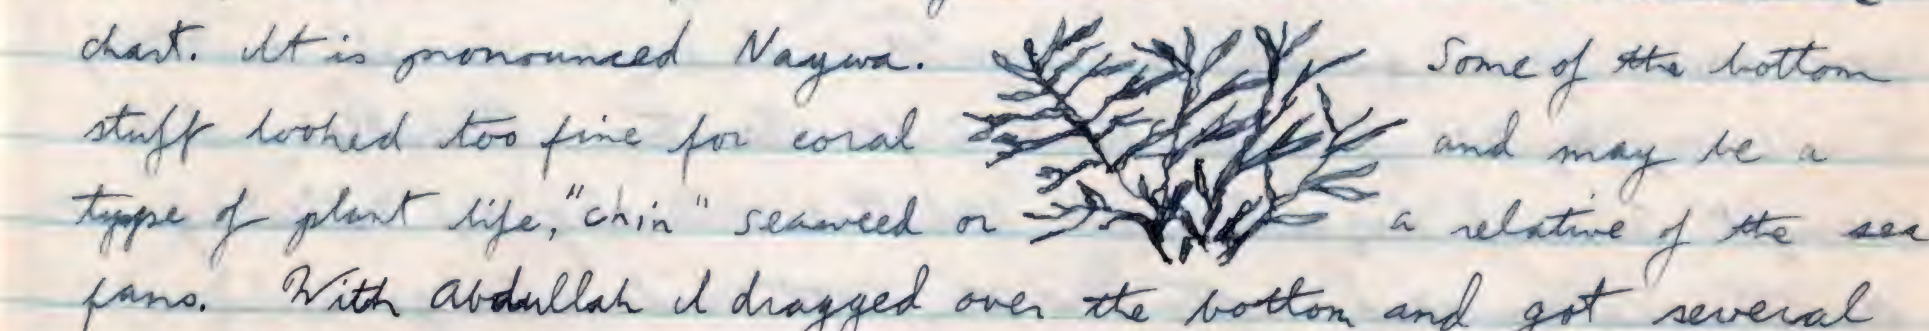 chart. It is pronounced Naywa. Some of the bottom
stuff looked too fine for coral and may be a
type of plant life, "chin" seaweed or a relative of the sea
fans. With Abdullah I dragged over the bottom and got several